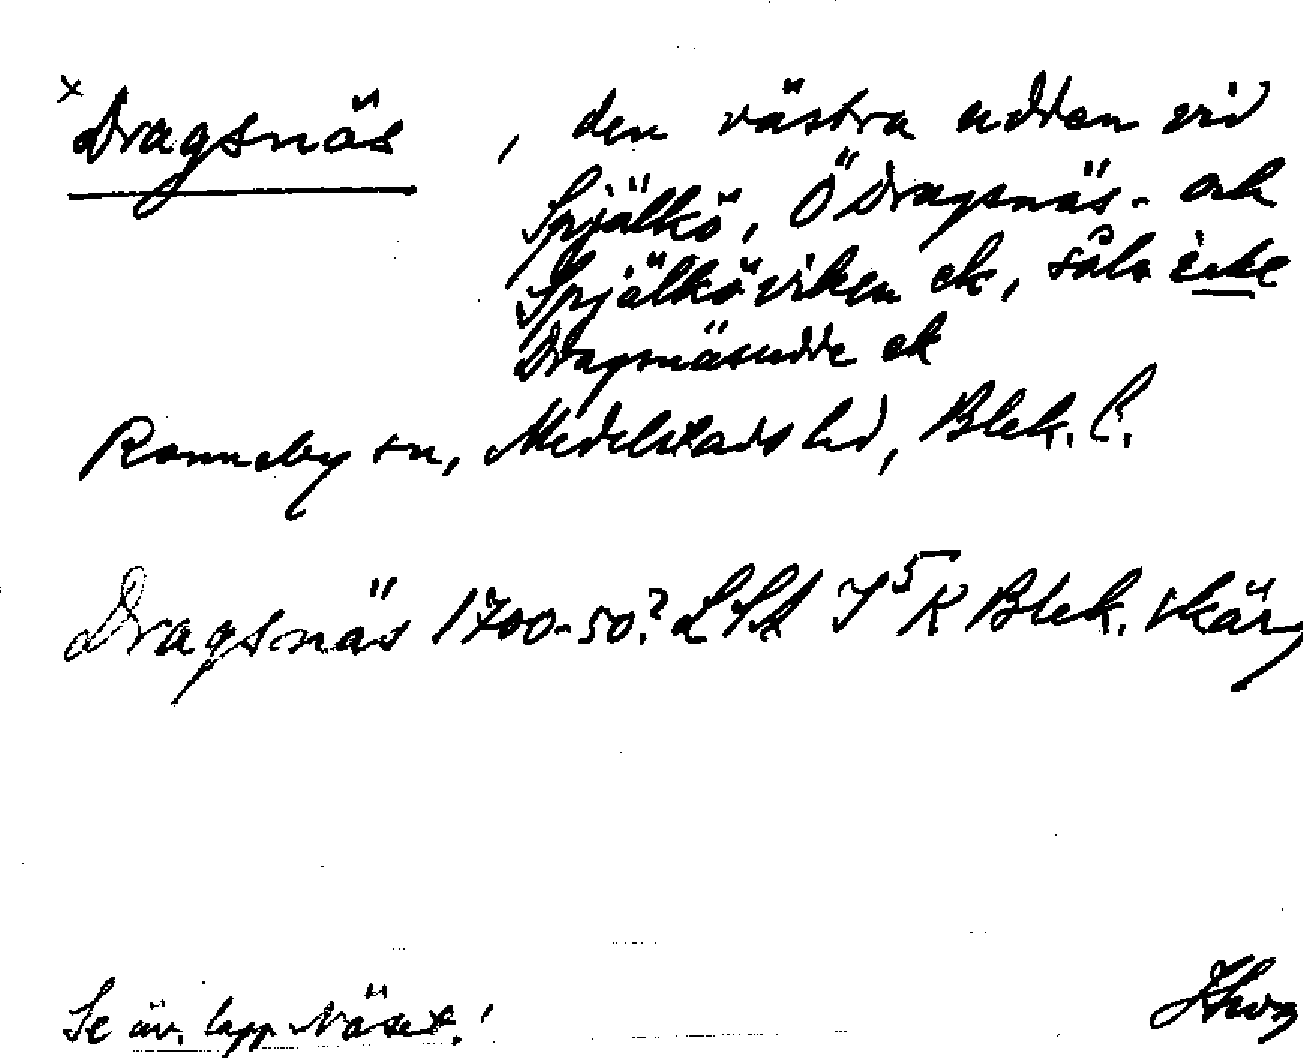 x Dragsnäs, den västra udden vid
Spjälkö, Ö Dragsnäs- och
Spjälköviken ek, såls icke
Dragsnäsudde ek
Ronneby sn, Medelstads hd, Blek. l.
Dragsnäs 1700-50? LSA K Blek. skärg
Se äv. lapp Näset!